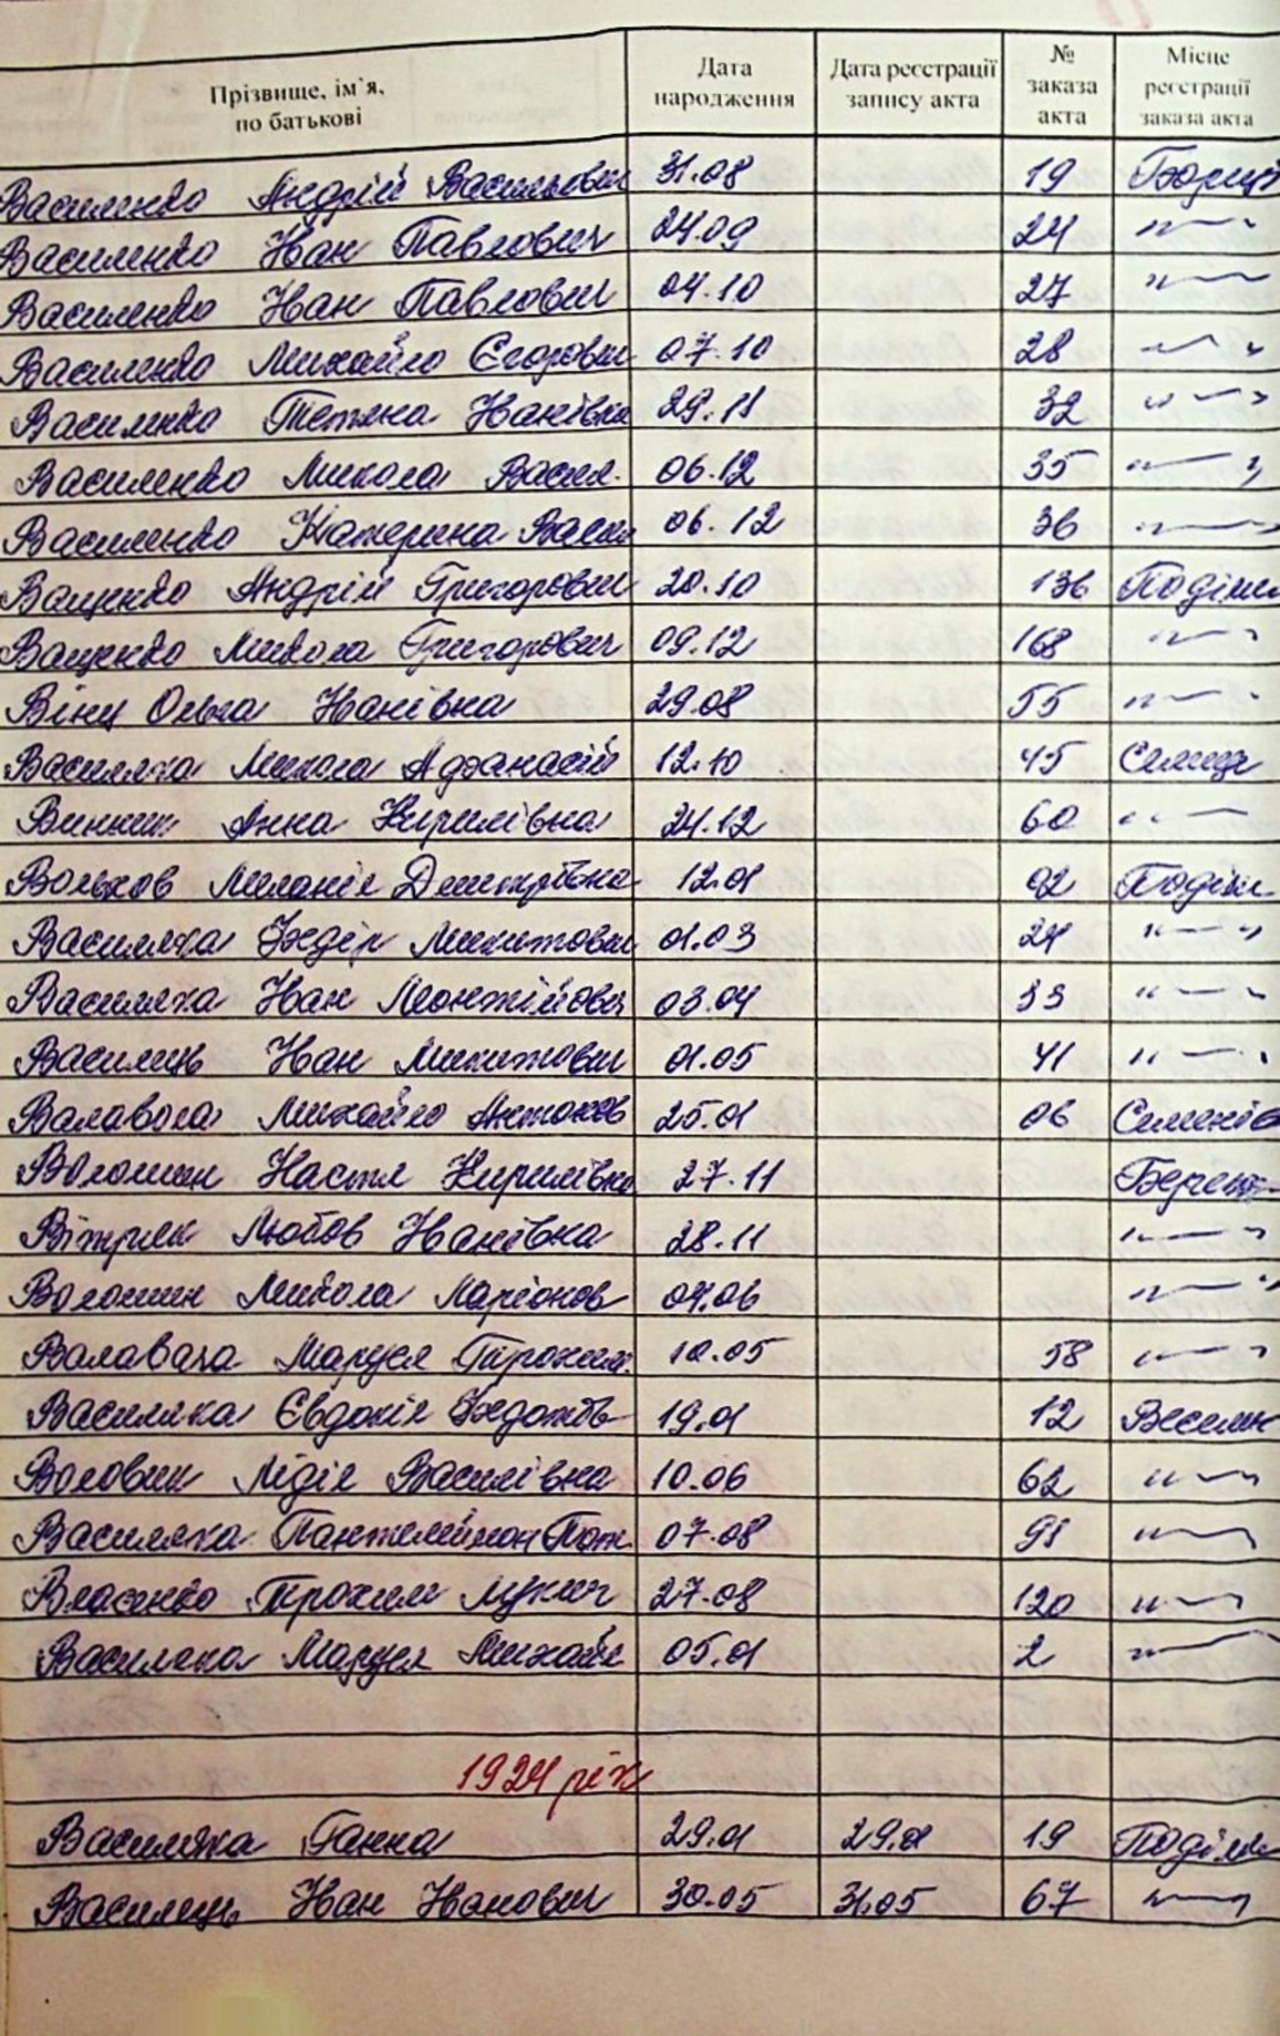 Прізвище, ім`я, по батькові Дата народження Дата реєстрації запису акта № заказа акта Місце реєстрації заказа акта
Василенко Андрій Васильович 31.08 19
Василенко Іван Павлович 24.09 24 " — "
Василенко Іван Павлович 04.10 27 " — "
Василенко Михайло Єгорович 07.10 28 " — "
Василенко Тетяна Іванівна 29.11 32 " — "
Василенко Микола Васил. 06.12 35 " — "
Василенко Катерина Васил 06.12 36 " — "
Ващенко Андрій Григорович 20.10 136 Поділля
Ващенко Микола Григорович 09.12 168 " — "
Віну Ольга Іванівна 29.08 55 " — "
Василяка Микола Афанасій 12.10 45 Селище
Винник Анна Кирилівна 24.12 60 " — "
Вольхов Меланія Дмитрівна 12.01 02 Поділл
Василяка Федір Микитович 01.03 24 " — "
Василяка Іван Леонтійович 03.04 33 " — "
Василець Іван Микитович 01.05 41 " — "
Валавола Михайло Антонов 25.01 06 Семенів
Волошин Настя Кирилівна 27.11
Вітряк Любов Іванівна 28.11 " — "
Волошин Микола Ларіонов 04.06 " — "
Маруся Трохим. 10.05 58 " — "
Василяка Євдокія Федотов 19.01 12 Веселин
Воловик Лідія Василівна 10.06 62 " — "
Василяка Пантелеймон Пот. 07.08 91 " — "
Власенко Трохим Лукич 27.08 120 " — "
Василяка Маруся Михайл 05.01 2 " — "
1924 рік
Василяка Ганна 29.01 29.01 19 Поділля
Василець Іван Іванович 30.05 31.05 67 " — "